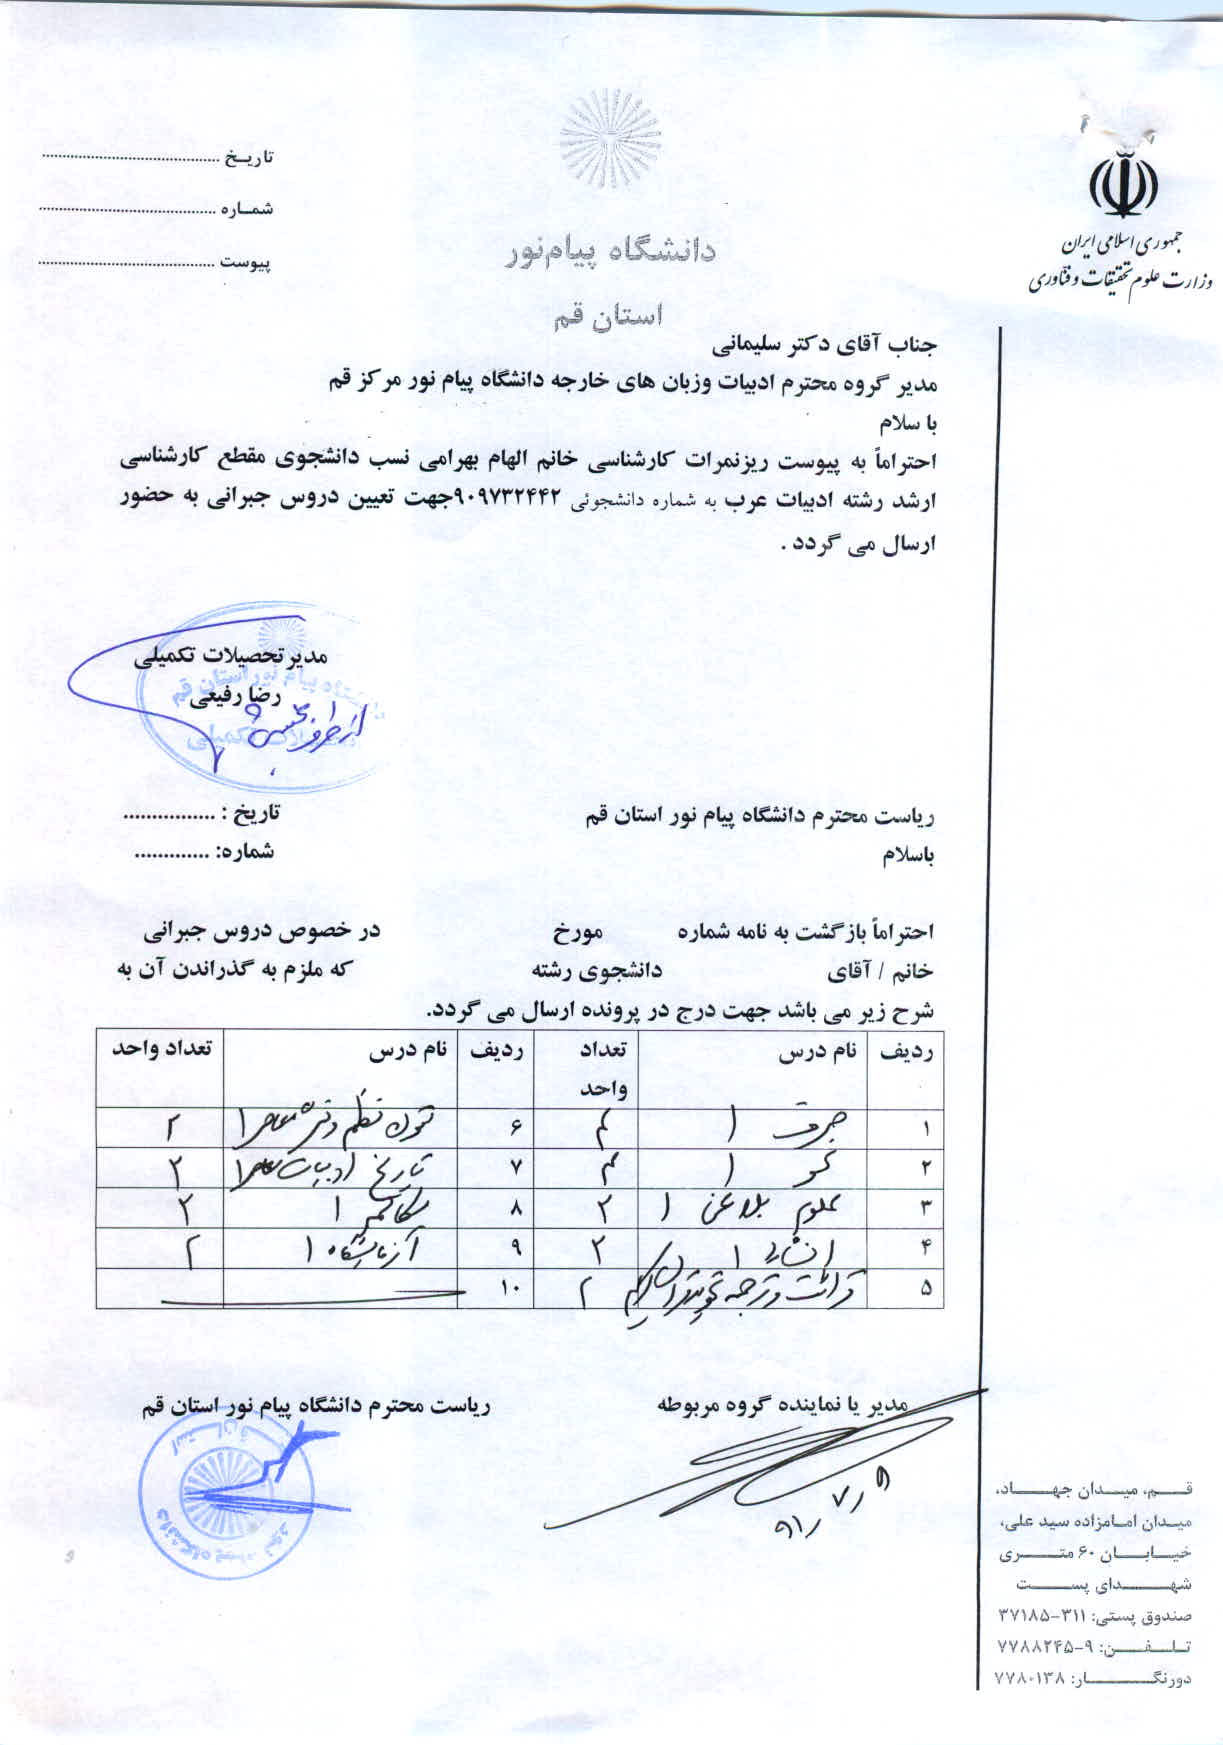 جمهوری اسلامی ایران
وزارت علوم تحقیقات و فناوری
دانشگاه پیام‌نور
استان قم
تاریـخ ............................
شمـاره ............................
پیوست ............................
جناب آقای دکتر سلیمانی
مدیر گروه محترم ادبیات وزبان های خارجه دانشگاه پیام نور مرکز قم
با سلام
احتراماً به پیوست ریزنمرات کارشناسی خانم الهام بهرامی نسب دانشجوی مقطع کارشناسی
ارشد رشته ادبیات عرب به شماره دانشجوئی ۹۰۹۷۳۲۴۴۲جهت تعیین دروس جبرانی به حضور
ارسال می گردد .
مدیرتحصیلات تکمیلی
رضا رفیعی
از طرف
ریاست محترم دانشگاه پیام نور استان قم
تاریخ : ................
باسلام
شماره: .............
احتراماً بازگشت به نامه شماره مورخ در خصوص دروس جبرانی
خانم / آقای دانشجوی رشته که ملزم به گذراندن آن به
شرح زیر می باشد جهت درج در پرونده ارسال می گردد.
ردیف نام درس تعداد واحد ردیف نام درس تعداد واحد
۱ صرف ۱ ۴ ۶ متون نظم و نثر معاصر ۱ ۲
۲ نحو ۱ ۴ ۷ تاریخ ادبیات معاصر ۱ ۲
۳ علوم بلاغی ۱ ۲ ۸ مکالمه ۱ ۲
۴ انشاء ۱ ۲ ۹ آزمایشگاه ۱ ۲
۵ قرائت و ترجمه ۲ ۱۰
مدیر یا نماینده گروه مربوطه
۹۱/۷/۹
ریاست محترم دانشگاه پیام نور استان قم
قــم، میـدان جهــاد،
میـدان امـامزاده سید علی،
خیـابـان ۶۰ متــری
شهــدای پســت
صندوق پستی: ۳۱۱-۳۷۱۸۵
تـلـفــن: ۹-۷۷۸۸۲۴۵
دورنگـــار: ۷۷۸۰۱۳۸